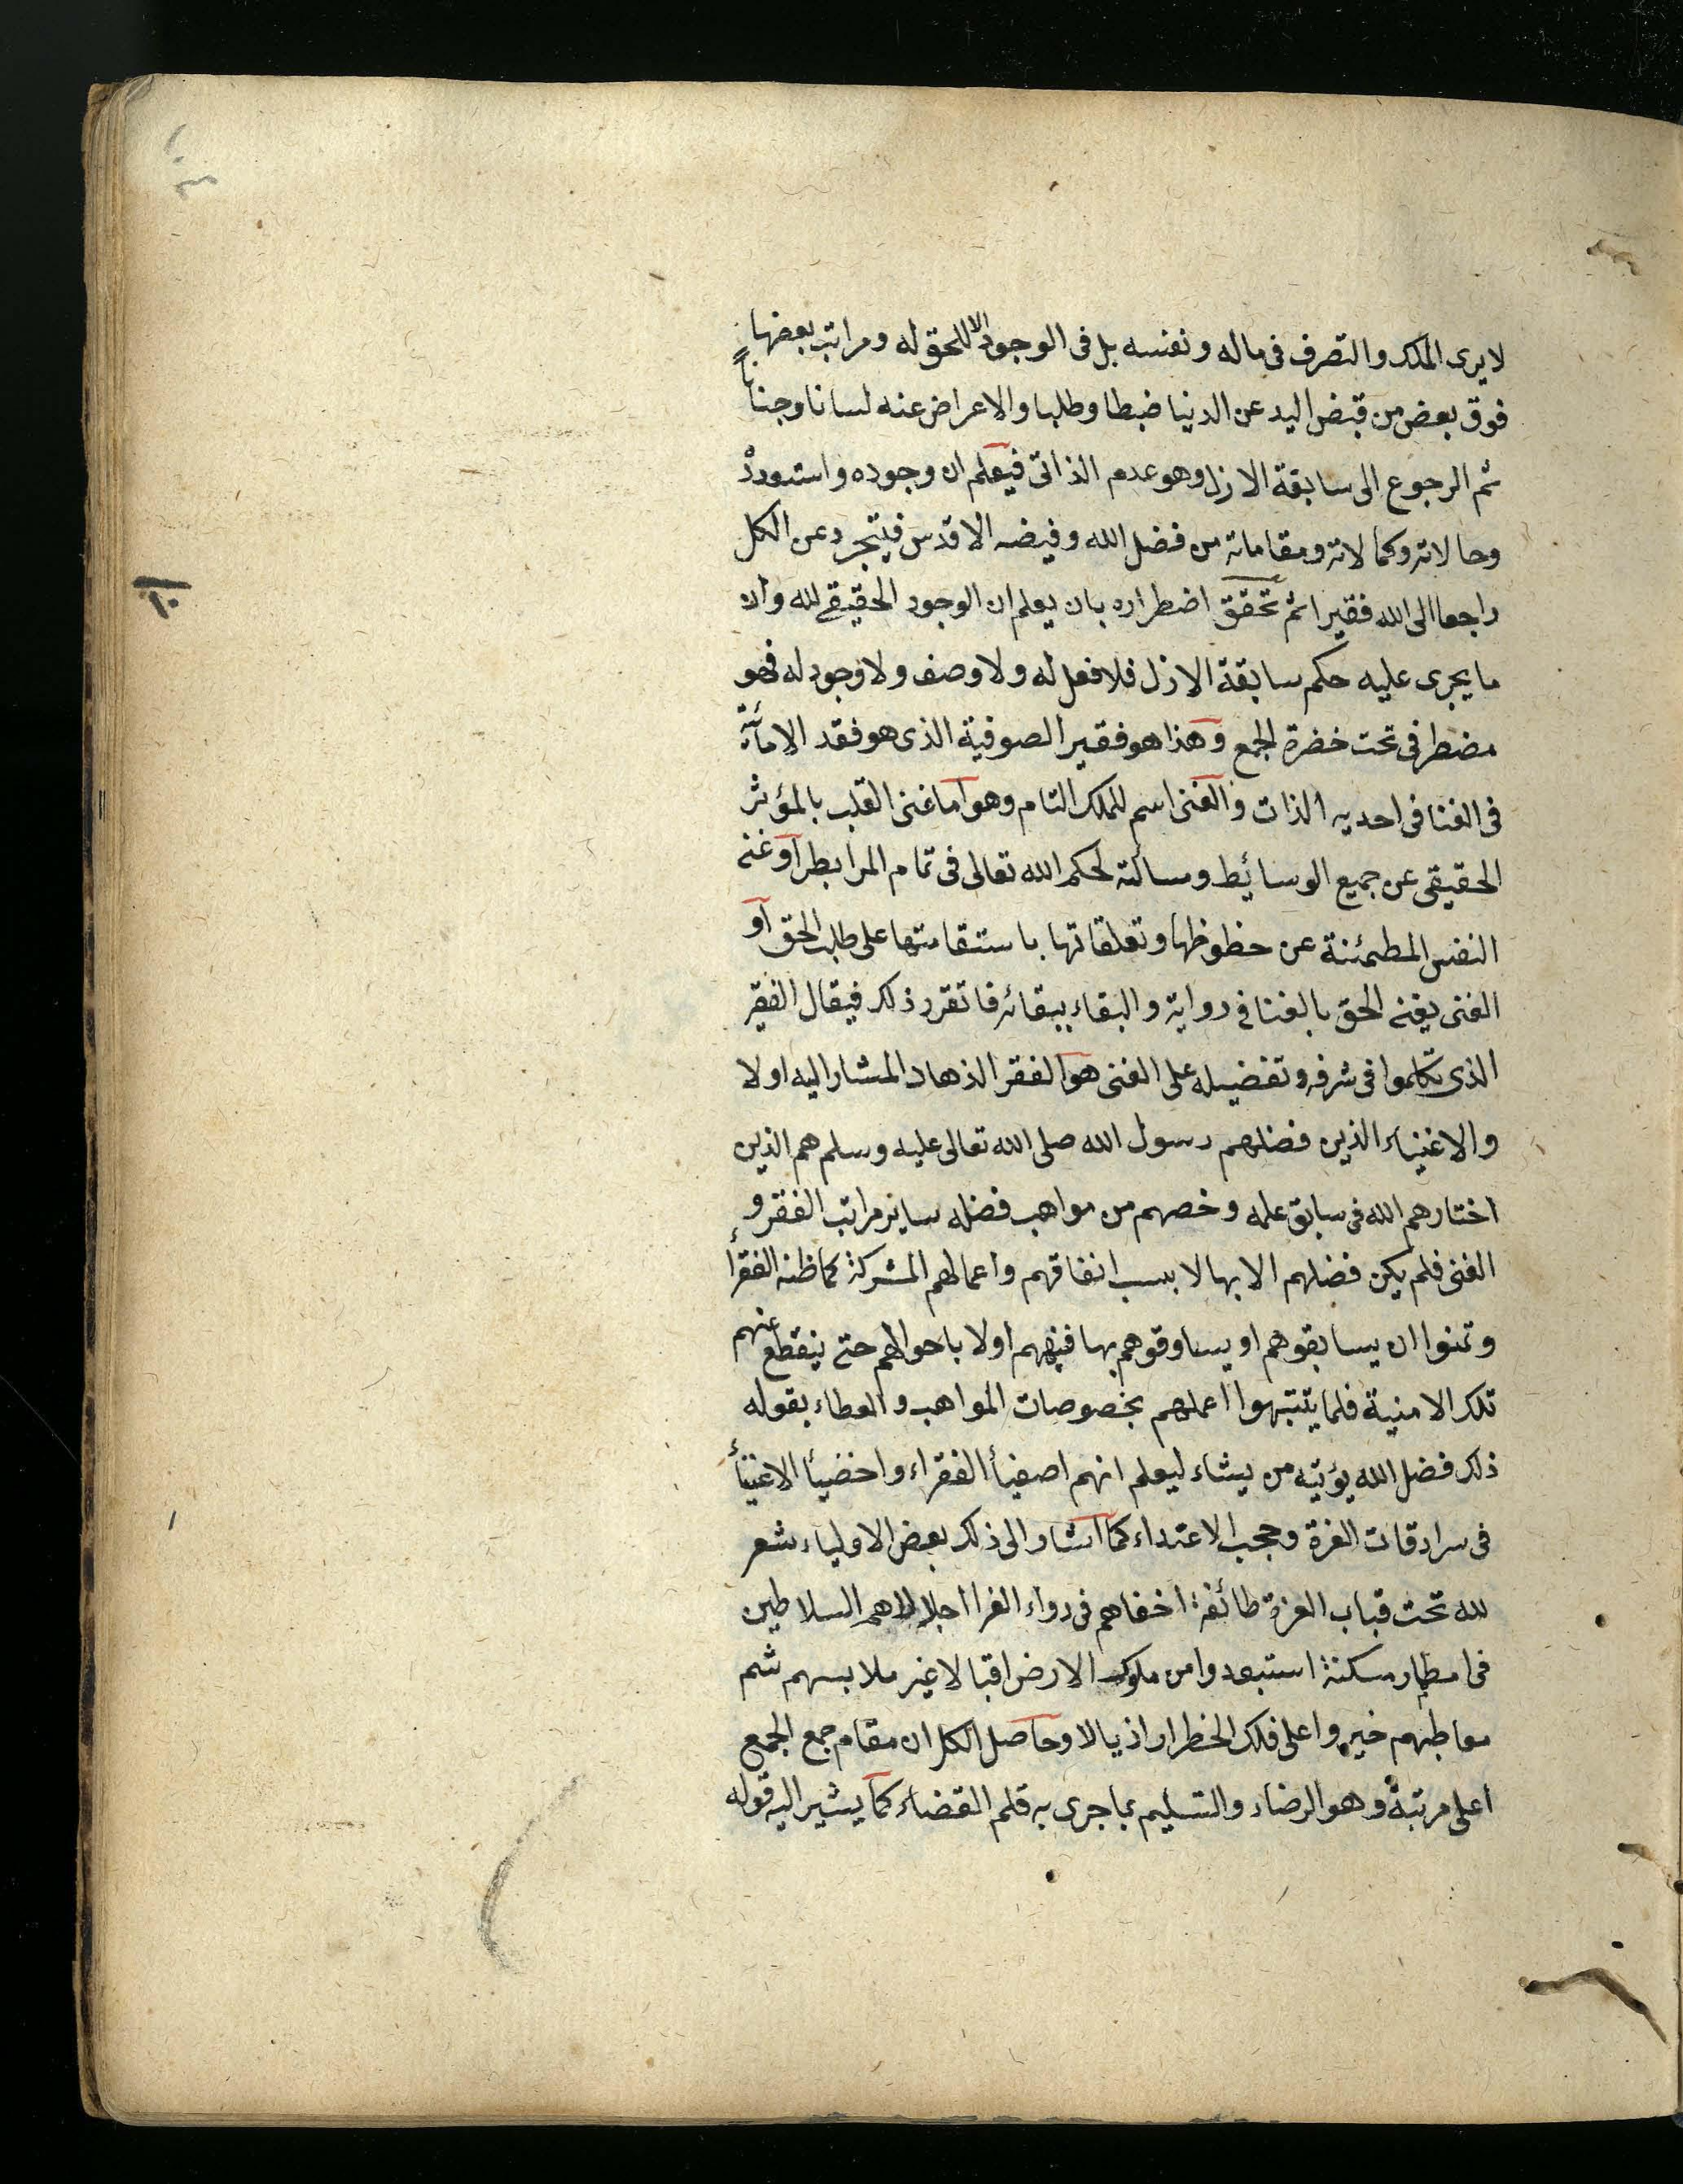 ١٠٣
لا يرى الملك والتصرف فى ماله ونفسه بل فى الوجود الا للحق له ومراتب بعضها
فوق بعض من قبض اليد عن الدنيا ضبطا وطلبا والاعراض عنه لسانا وجنانا
ثم الرجوع الى سابقة الازل وهو عدم الذاتى فيعلم ان وجوده
وحالاته وكمالاته ومقاماته من فضل الله وفيضه الاقدس فيتجرد عن الكل
راجعا الى الله فقيرا ثم تحقق اضطراره بان يعلم ان الوجود الحقيقے لله وان
ما يجرى عليه حكم سابقة الازل فلا فعل له ولا وصف ولا وجود له فهو
مضطر فى تحت حضرة الجمع وهذا هو فقير الصوفية الذى هو فقد
فى الفنا فى احديه الذات والغنى اسم للملك التام وهو اما غنى القلب بالمؤثر
الحقيقى عن جميع الوسائيط ومسالته لحكم الله تعالى فى تمام المرابط او غنے
النفس المطمئنة عن حظوظها وتعلقاتها باستقامتها على طلب الحق او
الغنى يغنے الحق بالفنا فى رواية والبقاء ببقائه فاتقرر ذلك فيقال الفقير
الذى تكلموا فى شرفه وتفضيله على الغنى هو الفقر الذهاد المشار اليه اولا
والاغنياء الذين فضلهم رسول الله صلى الله تعالى عليه وسلم هم الذين
اختارهم الله فى سابق علمه وخصهم من مواهب فضله ساير مراتب الفقر و
الغنى فلم يكن فضلهم الا بها لا بسبب انفاقهم واعمالهم المشركة كما ظنه الفقرأ
وتمنوا ان يسابقوهم او يساوقوهم بها فنبههم اولا باحوالهم حتے ينقطع عنهم
تلك الامنية فلما يتنبهوا اعملهم بخصوصات المواهب والعطاء بقوله
ذلك فضل الله يؤتيه من يشاء ليعلم انهم اصفيأ الفقراء واخفيأ الاغنيأ
فى سرادقات الغزة وحجب الاعتداء كما اشار الى ذلك بعض الاولياء شعر
لله تحت قباب العزة طائفة اخفاهم فى رداء الفرا اجلالا هم السلاطين
فى امطار مسكنة استبعدوا من ملوك الارض اقبالا غير ملابسهم شم
معاطبهم خيروا على فلك الخطرار اذيالا وحاصل الكل ان مقام جمع الجمع
اعلى مرتبة وهو الرضاء والتسليم بما جرى به قلم القضاء كما يشير اليه قوله